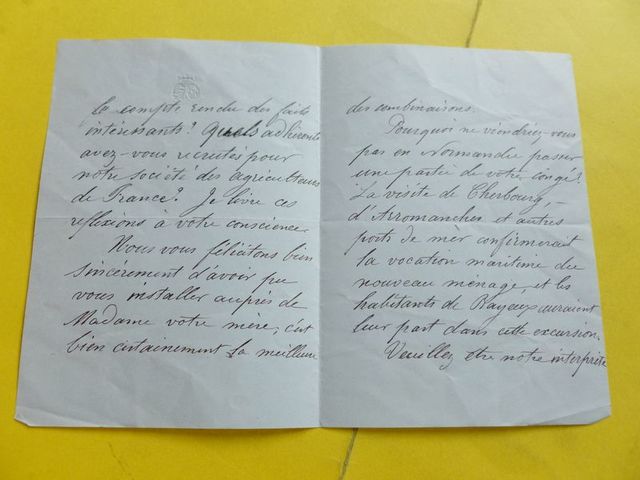 le compte rendu des faits
intéressants? Quels adhérents
avez-vous recrutés pour
notre société des agriculteurs
de France? Je livre ces
réflexions à votre conscience
Nous vous félicitons bien
sincèrement d'avoir pu
vous installer auprès de
Madame votre mère; c'est
bien certainement la meilleure
des combinaisons.
Pourquoi ne viendriez-vous
pas en Normandie passer
une partie de votre congé?
La visite de Cherbourg, –
d'Arromanches et autres
ports de mer confirmerait
la vocation maritime du
nouveau ménage, et les
habitants de Bayeux auraient
leur part dans cette excursion.
Veuillez être notre interprète